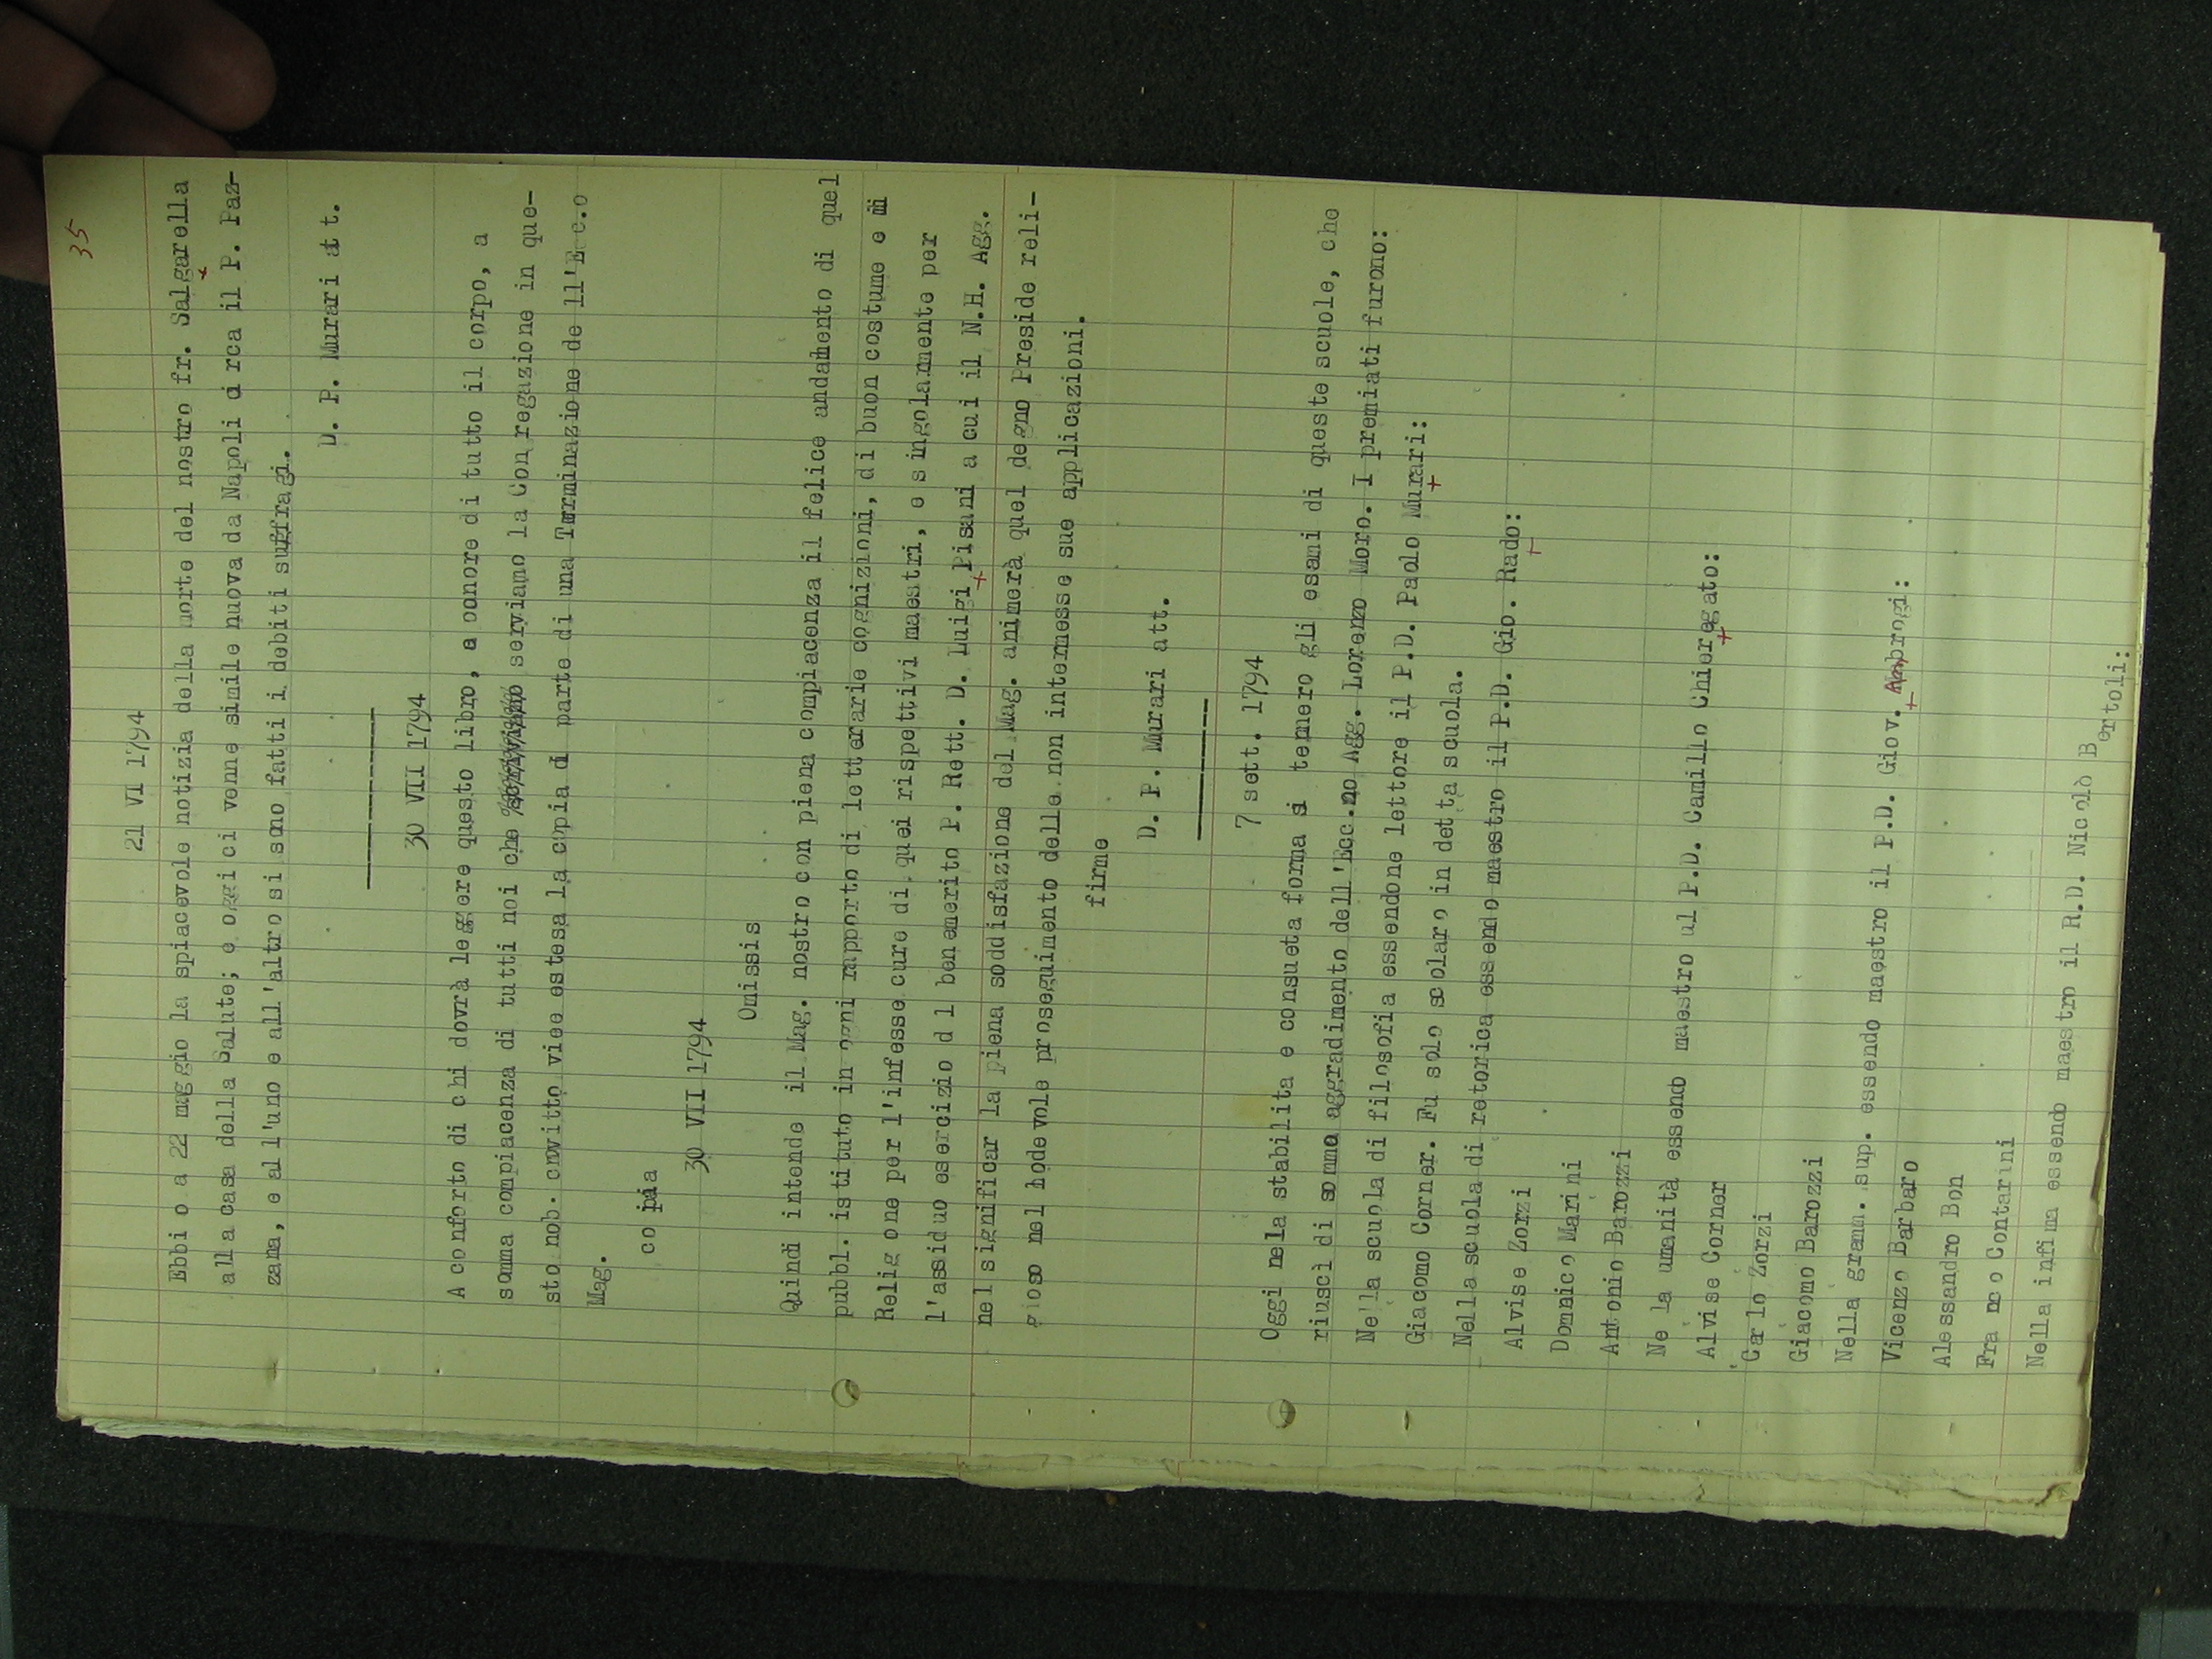 35
21 VI 1794
Ebbi o a 22 maggio la spiacevole notizia della morte del nostro fr. Salgarella
alla casa della Salute; e oggi ci venne simile nuova da Napoli circa il P. Paz-
zana, e all'uno e all'altro si sono fatti i debiti suffragi.
D. P. Murari att.
30 VII 1794
A conforto di chi dovrà leggere questo libro, a onore di tutto il corpo, a
somma compiacenza di tutti noi che serviamo la Con regazione in que-
sto nob. convitto viee estesa la copia di parte di una Terminazione de ll'Ecc.o
Mag.
copia
30 VII 1794
Omissis
Quindi intende il Mag. nostro con piena compiacenza il felice andamento di quel
pubbl. istituto in ogni rapporto di letterarie cognizioni, di buon costume e di
Relig one per l'infesse cure di quei rispettivi maestri, e singolamente per
l'assiduo esercizio d l benemerito P. Rett. D. Luigi Pisani a cui il N.H. Agg.
nel significar la piena soddisfazione del Mag. animerà quel degno Preside reli-
gioso nel lodevole proseguimento delle non intermesse sue applicazioni.
firme
D. P. Murari att.
7 sett. 1794
Oggi nela stabilita e consueta forma si tennero gli esami di queste scuole, che
riuscì di sommo aggradimento dell'Ecc.no Agg. Lorenzo Moro. I premiati furono:
Nella scuola di filosofia essendone lettore il P.D. Paolo Murari:
Giacomo Corner. Fu solo scolaro in detta scuola.
Nella scuola di retorica essendo maestro il P.D. Gio. Rado:
Alvise Zorzi
Domnico Marini
Antonio Barozzi
Ne la umanità essendo maestro ul P.D. Camillo Chieregato:
Alvise Corner
Carlo Zorzi
Giacomo Barozzi
Nella gramm. sup. essendo maestro il P.D. Giov. Ambrogi:
Vicenzo Barbaro
Alessandro Bon
Fra nco Contarini
Nella infima essendo maestro il R.D. Nicolò Bertoli: